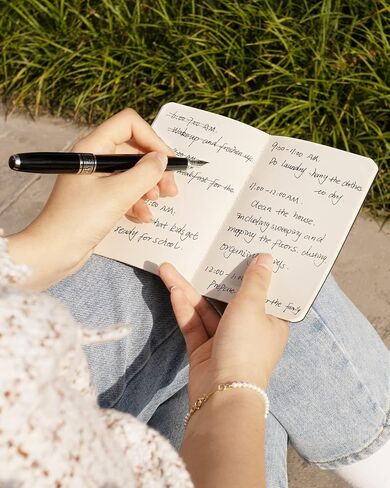 -6:00-7:00 AM.
-Wake up and freshen up
breakfast for the
AM.
that kids get
ready for school.
9:00-11:00 AM.
Do laundry, hang the clothes
to dry
11:00-12:00 AM.
Clean the house,
including sweeping and
mopping the floors, dusting
organizing
12:00-1
Prepare for the family